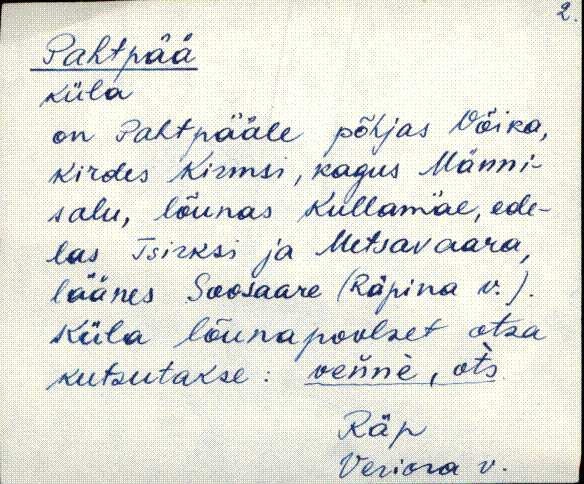 2.
Pahtpää
küla
on Pahtpääle põhjas Võika,
kirdes Kirmsi, kagus Männi-
salu, lõunas Kullamäe, ede-
las Tsirksi ja Metsavaara,
läänes Soosaare (Räpina v.).
Küla lõunapoolset otsa
kutsutakse: veǹnè, ots̀
Räp
Veriora v.